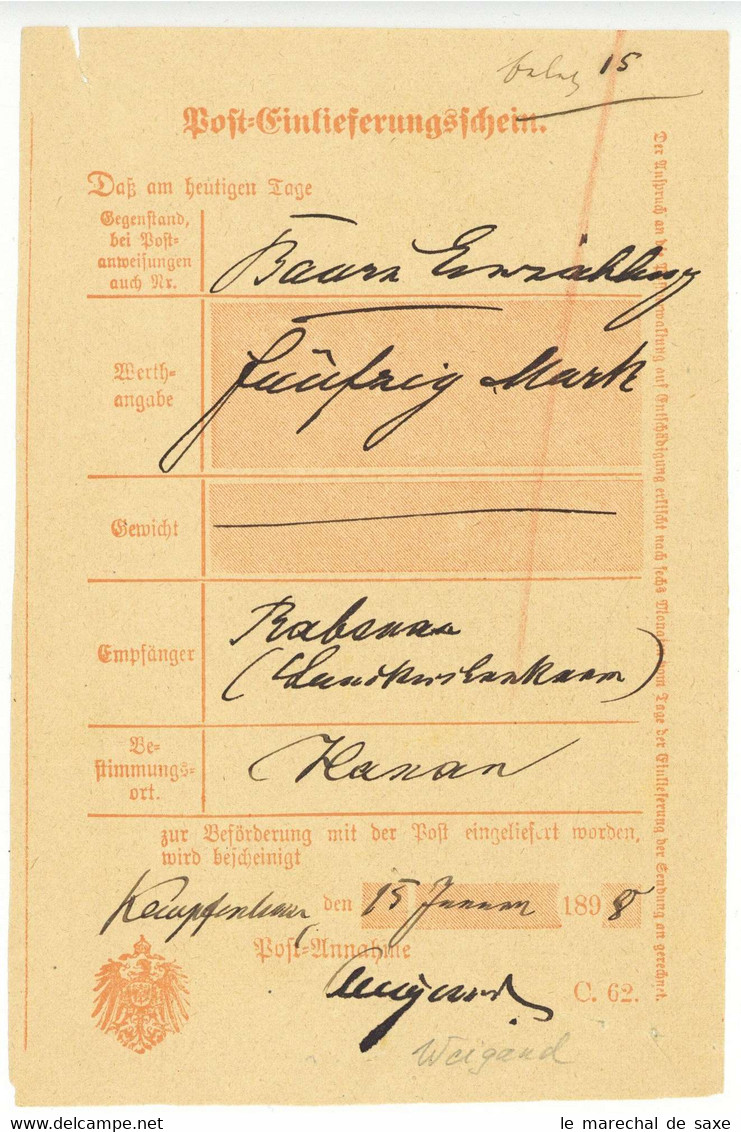 15
Post=Einlieferungsschein.
Daß am heutigen Tage
Gegenstand,
bei Post=
anweisungen
auch Nr.
Baare Einzahlung
Werth=
angabe
fünfzig Mark
Gewicht
Empfänger
Rabenau
(Landkrankenkasse)
Be=
stimmungs=
ort.
Hanau
zur Beförderung mit der Post eingeliefert worden,
wird bescheinigt
den 15 Januar 1898
Post=Annahme
C. 62.
Weigand
Der Anspruch an die Postverwaltung auf Entschädigung erlischt nach sechs Monaten vom Tage der Einlieferung der Sendung an gerechnet.
le marechal de saxe